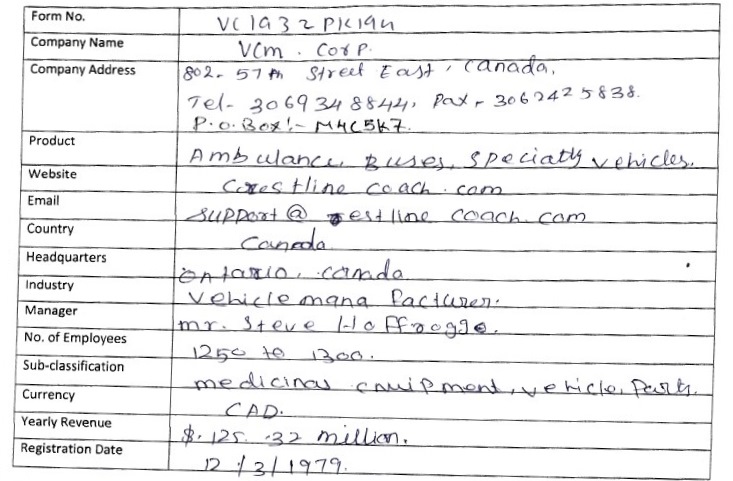 Form No. VC1932PK194
Company Name VCM. Corp.
Company Address 802- 57th Street East, Canada,
Tel- 3069348844, Pax- 3062425838.
P.O. Box:- M4C5K7
Product Ambulance, Buses, Specialty vehicles.
Website Crestline coach.com
Email support@ estline coach.com
Country Canada
Headquarters Ontario, canada
Industry Vehicle manufacturer.
Manager mr. Steve Hoffrogge.
No. of Employees 1250 to 1300.
Sub-classification medicinal equipment, vehicle, Parts.
Currency CAD.
Yearly Revenue $. 125. 32 million.
Registration Date 12/3/1979.